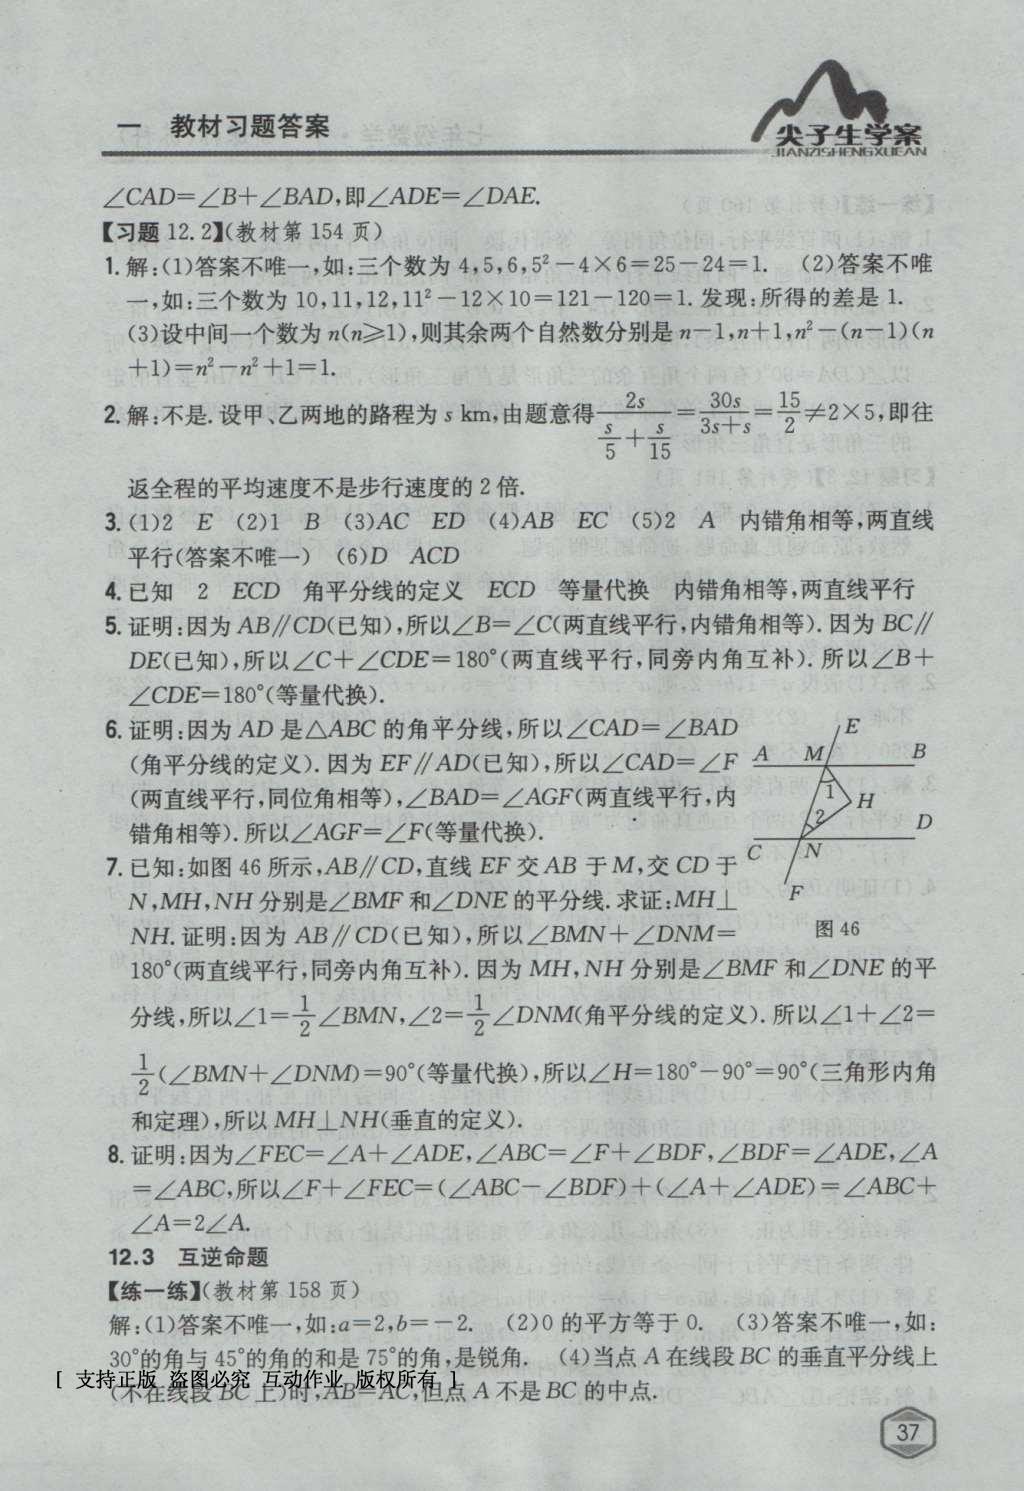 一 教材习题答案
尖子生学案
JIANZISHENGXUEAN
∠CAD=∠B+∠BAD,即∠ADE=∠DAE.
【习题 12.2】(教材第 154 页)
1. 解:(1)答案不唯一,如:三个数为 4,5,6,5²-4×6=25-24=1. (2)答案不唯
一,如:三个数为 10,11,12,11²-12×10=121-120=1. 发现:所得的差是 1.
(3)设中间一个数为 n(n≥1),则其余两个自然数分别是 n-1,n+1,n²-(n-1)(n
+1)=n²-n²+1=1.
2. 解:不是. 设甲、乙两地的路程为 s km,由题意得 2s/(s/5+s/15)=30s/(3s+s)=15/2≠2×5,即往
返全程的平均速度不是步行速度的 2 倍.
3. (1)2 E (2)1 B (3)AC ED (4)AB EC (5)2 A 内错角相等,两直线
平行(答案不唯一) (6)D ACD
4. 已知 2 ECD 角平分线的定义 ECD 等量代换 内错角相等,两直线平行
5. 证明:因为 AB∥CD(已知),所以∠B=∠C(两直线平行,内错角相等). 因为 BC∥
DE(已知),所以∠C+∠CDE=180°(两直线平行,同旁内角互补). 所以∠B+
∠CDE=180°(等量代换).
6. 证明:因为 AD 是△ABC 的角平分线,所以∠CAD=∠BAD
(角平分线的定义). 因为 EF∥AD(已知),所以∠CAD=∠F
(两直线平行,同位角相等),∠BAD=∠AGF(两直线平行,内
错角相等). 所以∠AGF=∠F(等量代换).
7. 已知:如图 46 所示,AB∥CD,直线 EF 交 AB 于 M,交 CD 于
N,MH,NH 分别是∠BMF 和∠DNE 的平分线. 求证:MH⊥
NH. 证明:因为 AB∥CD(已知),所以∠BMN+∠DNM=
E
A M B
1
H
2
D
C N
F
图 46
180°(两直线平行,同旁内角互补). 因为 MH,NH 分别是∠BMF 和∠DNE 的平
分线,所以∠1=1/2∠BMN,∠2=1/2∠DNM(角平分线的定义). 所以∠1+∠2=
1/2(∠BMN+∠DNM)=90°(等量代换),所以∠H=180°-90°=90°(三角形内角
和定理),所以 MH⊥NH(垂直的定义).
8. 证明:因为∠FEC=∠A+∠ADE,∠ABC=∠F+∠BDF,∠BDF=∠ADE,∠A
=∠ABC,所以∠F+∠FEC=(∠ABC-∠BDF)+(∠A+∠ADE)=∠ABC+
∠A=2∠A.
12.3 互逆命题
【练一练】(教材第 158 页)
解:(1)答案不唯一,如:a=2,b=-2. (2)0 的平方等于 0. (3)答案不唯一,如:
30°的角与 45°的角的和是 75°的角,是锐角. (4)当点 A 在线段 BC 的垂直平分线上
(不在线段 BC 上)时,AB=AC,但点 A 不是 BC 的中点.
[ 支持正版 盗图必究 互动作业 版权所有 ]
37